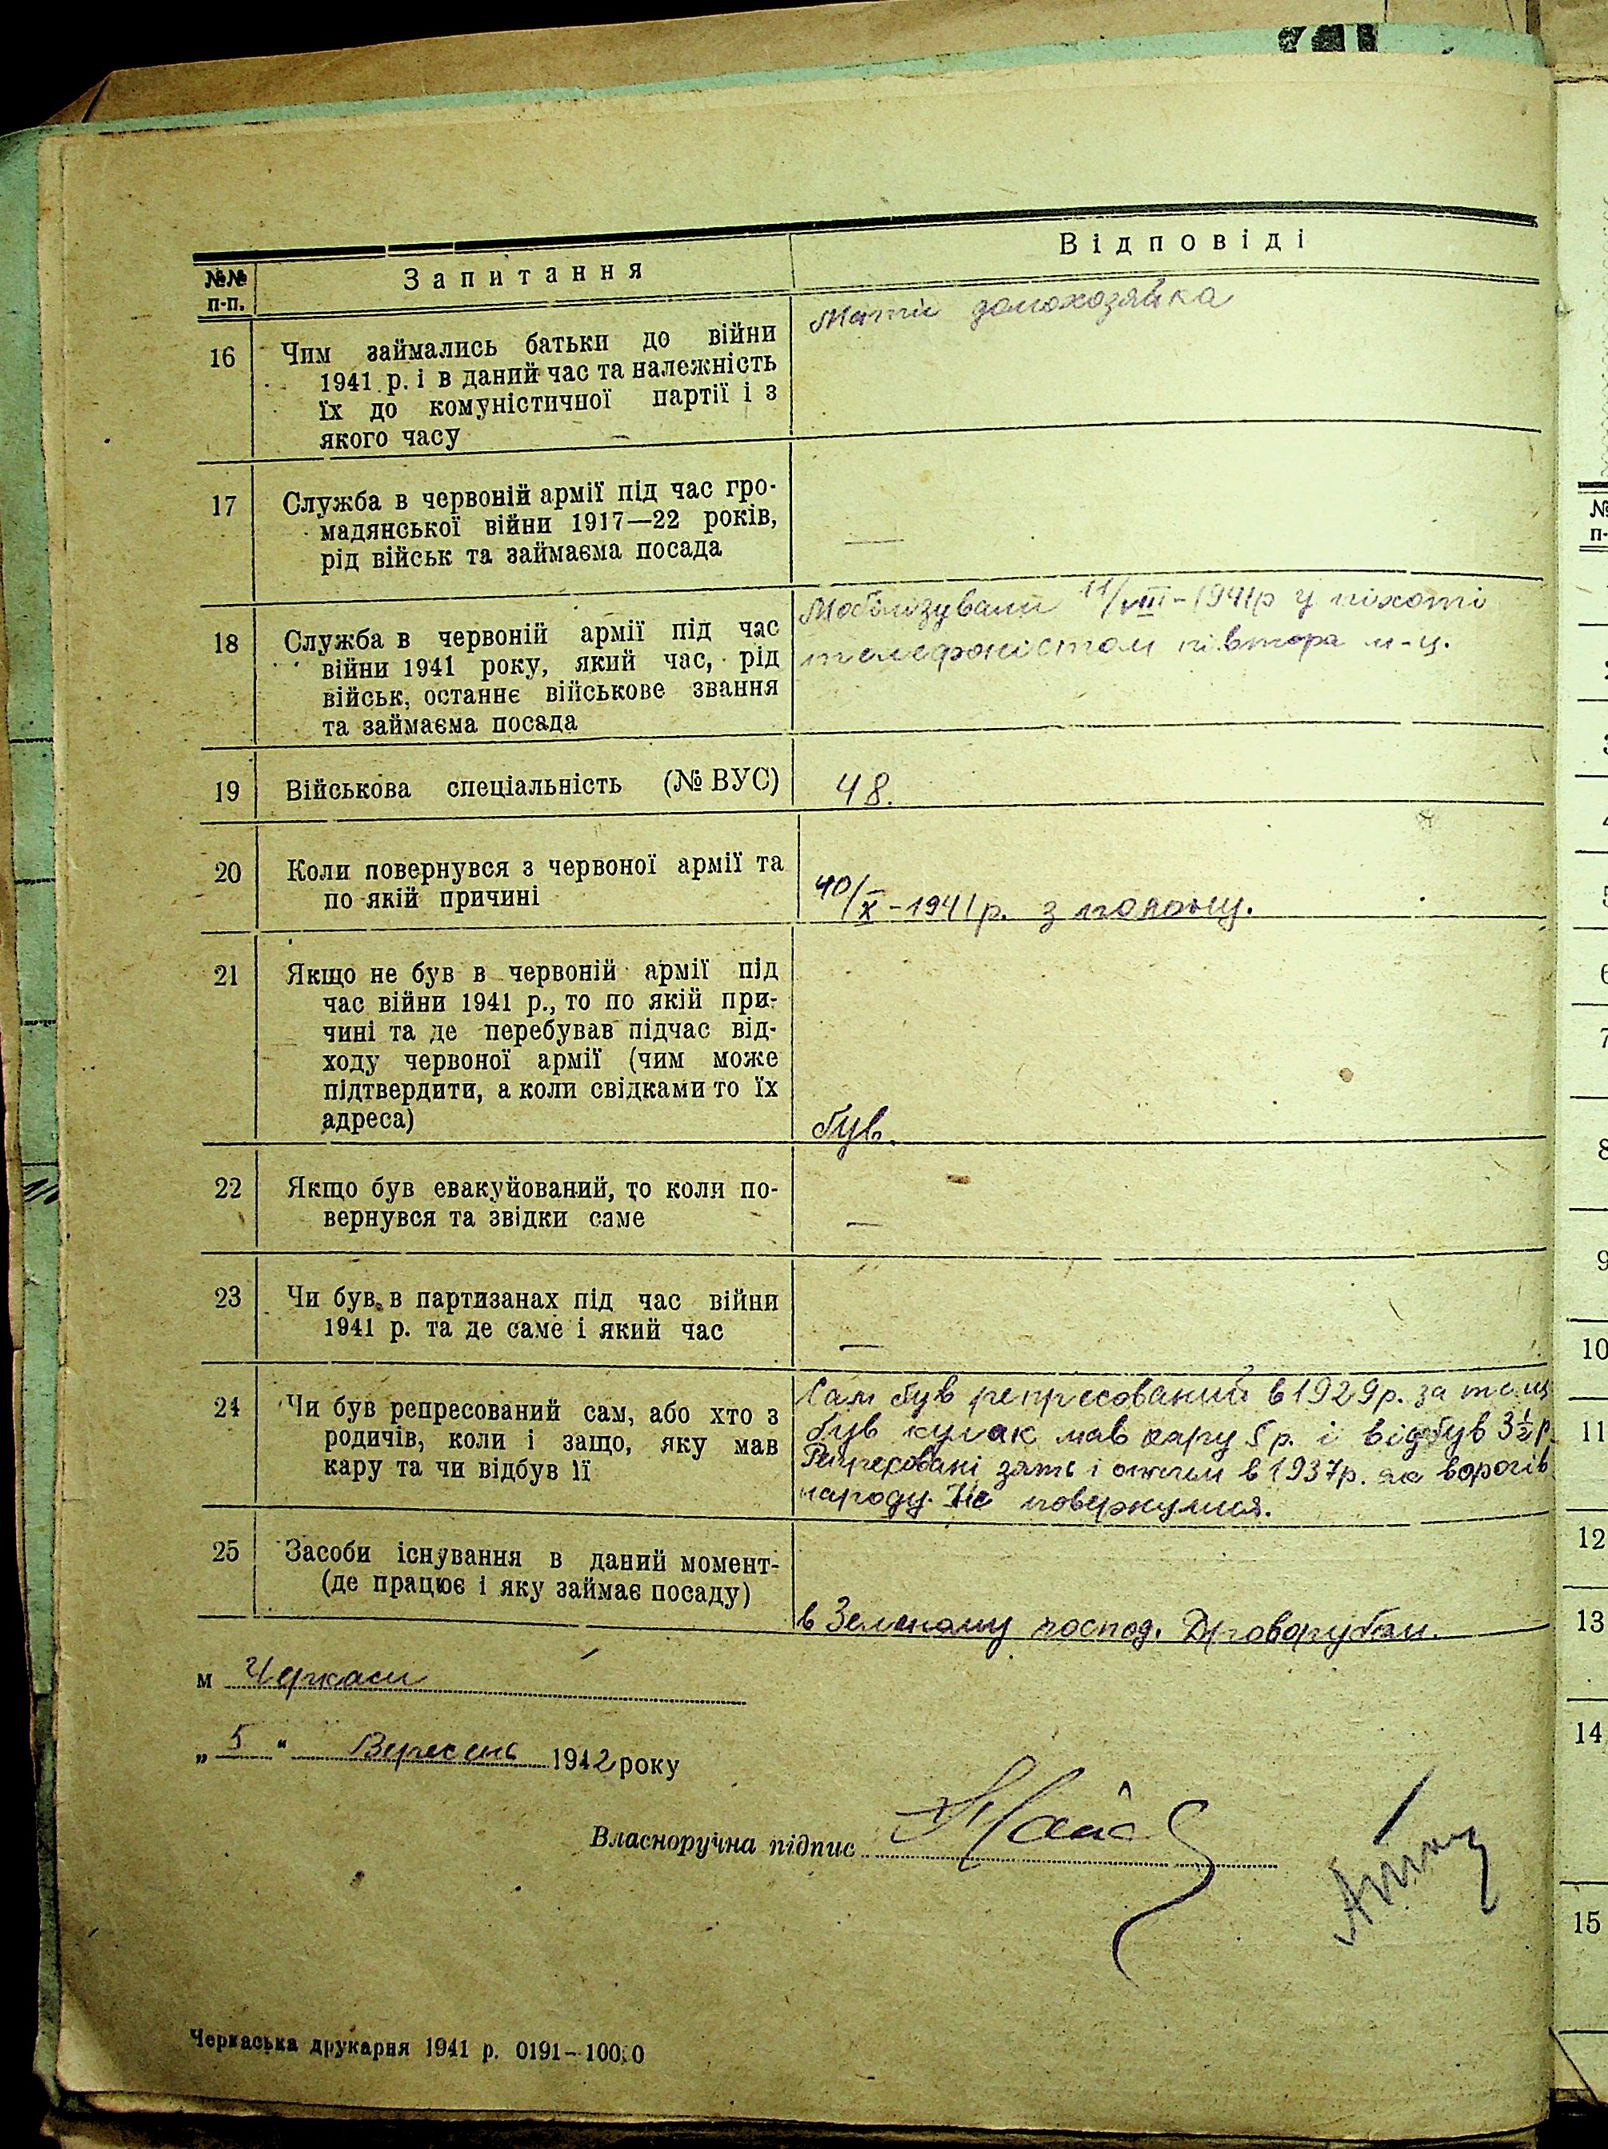 №№ п-п.
Запитання
Відповіді
16
Чим займались батьки до війни
1941 р. і в даний час та належність
їх до комуністичної партії і з
якого часу
Мати домохозяйка
17
Служба в червоній армії під час гро-
мадянської війни 1917—22 років,
рід військ та займаєма посада
—
18
Служба в червоній армії під час
війни 1941 року, який час, рід
військ, останнє військове звання
та займаєма посада
Мобілізували 11/VIII-1941р у піхоті
телефоністом півтора м-ц.
19
Військова спеціальність (№ ВУС)
48.
20
Коли повернувся з червоної армії та
по якій причині
10/X-1941р. з полону.
21
Якщо не був в червоній армії під
час війни 1941 р., то по якій при-
чині та де перебував підчас від-
ходу червоної армії (чим може
підтвердити, а коли свідками то їх
адреса)
був.
22
Якщо був евакуйований, то коли по-
вернувся та звідки саме
—
23
Чи був в партизанах під час війни
1941 р. та де саме і який час
—
24
Чи був репресований сам, або хто з
родичів, коли і защо, яку мав
кару та чи відбув її
Сам був репресований в 1929р. за те що
був кулак мав кару 5 р. і відбув 3½ р.
Репресовані зять і в 1937р. як ворогів
народу. Не повернулися.
25
Засоби існування в даний момент-
(де працює і яку займає посаду)
в Зеленому господ. Дроворубом.
м Черкаси
„ 5 “ Вересень 1942 року
Власноручна підпис
Черкаська друкарня 1941 р. 0191–10000
№
п-
2
3
4
5
6
7
8
9
10
11
12
13
14
15